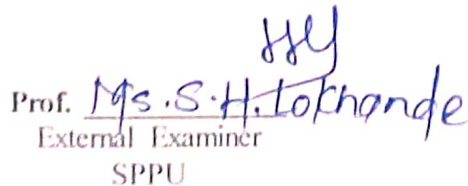 Prof. Ms. S. H. Lokhande
External Examiner
SPPU